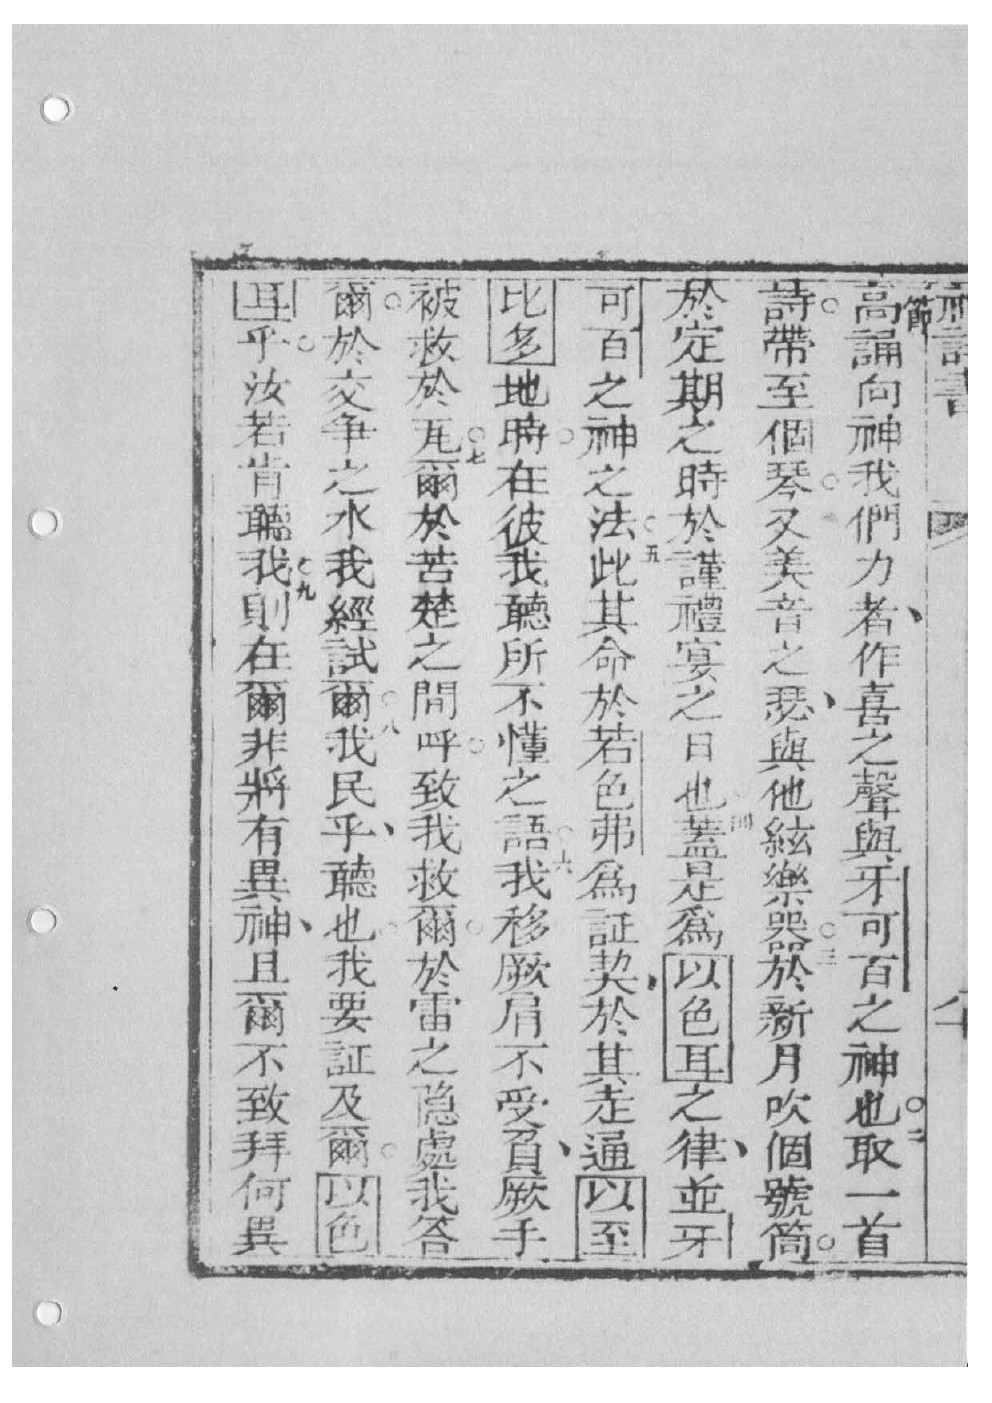 神詩書
節
高誦向神我們力者、作喜之聲與牙可百之神也○二取一首
詩○帶至個琴○又美音之瑟、與他絃樂器○三於新月吹個號筒○
於定期之時於謹禮宴之日也○四蓋是爲以色耳之律、並牙
可百之神之法○五此其命於若色弗爲証契、於其走通以至
比多地時○在彼我聽所不懂之語○六我移厥肩不受負、厥手
被救於瓦○七爾於苦楚之間呼○致我救爾○於雷之隐處我答
爾○於交争之水我經試爾○八我民乎、聽也○我要証及爾○以色
耳乎○汝若肯聽我○九則在爾非將有異神、且爾不致拜何異